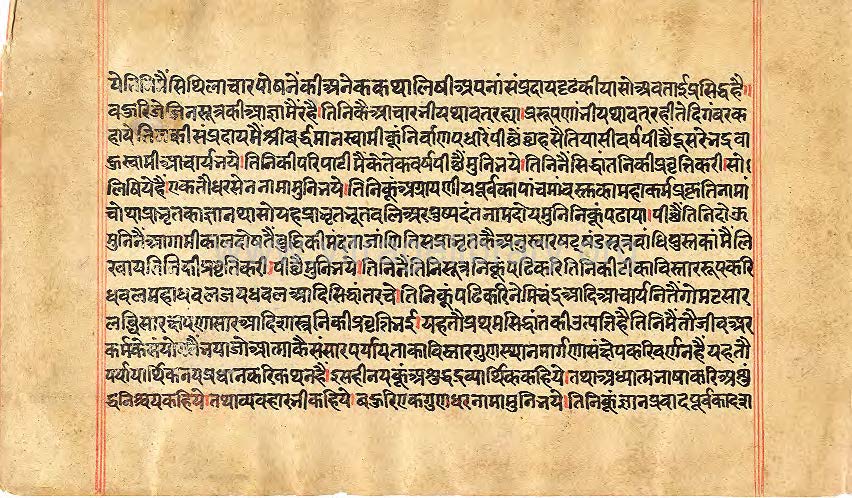 येतिनिमैं सिथिलाचारपोषनेंकी अनेककथा लिषी अपनां संप्रदाय दृढ कीया सो अबताईं प्रसिद्ध है
बहुरि जे जिनसूत्रकी आज्ञामैं रहै। तिनिकै आचारनी यथावत रह्या। प्ररूपणांनी यथावत रही ते दिगंबर क
संप्रदायमै श्रीवर्द्धमानस्वामीकूं निर्वाण पधारे पीछैं छहसै तियासी वर्ष पीछैं दूसरे नद्रवा
हुस्वामी आचार्य नये। तिनिकी परिपाटीमै केतेक वर्ष पीछैं मुनि नये। तिनिनैं सिद्धांतनिकी प्रवृत्ति करी। सो।
लिषिये है। एक तौ धरसेन नामा मुनि नये। तिनिकूं अग्रायणीय पूर्वका पांचमा वस्तुका महाकर्म प्रकृति नामां
चोथा प्राभृतका ज्ञान था सो यह प्राभृत भूतबलि अर पुष्पदंत नाम दोय मुनिनिकूं पढाया। पीछैं तिनि दोऊ
मुनिनैं आगामी कालदोषतैं बुद्धिकी मंदता जांणि तिस प्राभृतकै अनुसार षट्षंडसूत्र बांधि पुस्तकांमैं लि
खाय तिनिकी प्रवृत्ति करी। पीछैं मुनि नये। तिनिनै तिनि सूत्रनिकूं पढि करि तिनिकी टीका विस्ताररूप करि
धवल महाधवल जयधवल आदि सिद्धांत रचे। तिनिकूं पढि करि नेमिचंद्र आदि आचार्यनितैं गोमटसार
लब्धिसार क्षपणासार आदि शास्त्रनिकी प्रवृत्ति नई। यह तौ प्रथम सिद्धांतकी उत्पत्ति है तिनिमैं तौ जीव अर
कर्मकै संयोगतै नया जो आत्माकै संसारपर्याय ताका विस्तार गुणस्थान मार्गणा संक्षेप करि वर्णन हैं यह तौ
पर्यायार्थिकनय प्रधानकरि कथन हैं। इसही नयकूं अशुद्धद्रव्यार्थिक कहिये। तथा अध्यात्मनाषाकरि अशु
द्धनिश्चय कहिये। तथा व्यवहारनी कहिये। बहुरि एक गुणधर नामा मुनि नये। तिनिकूं ज्ञानप्रवाद पूर्वका